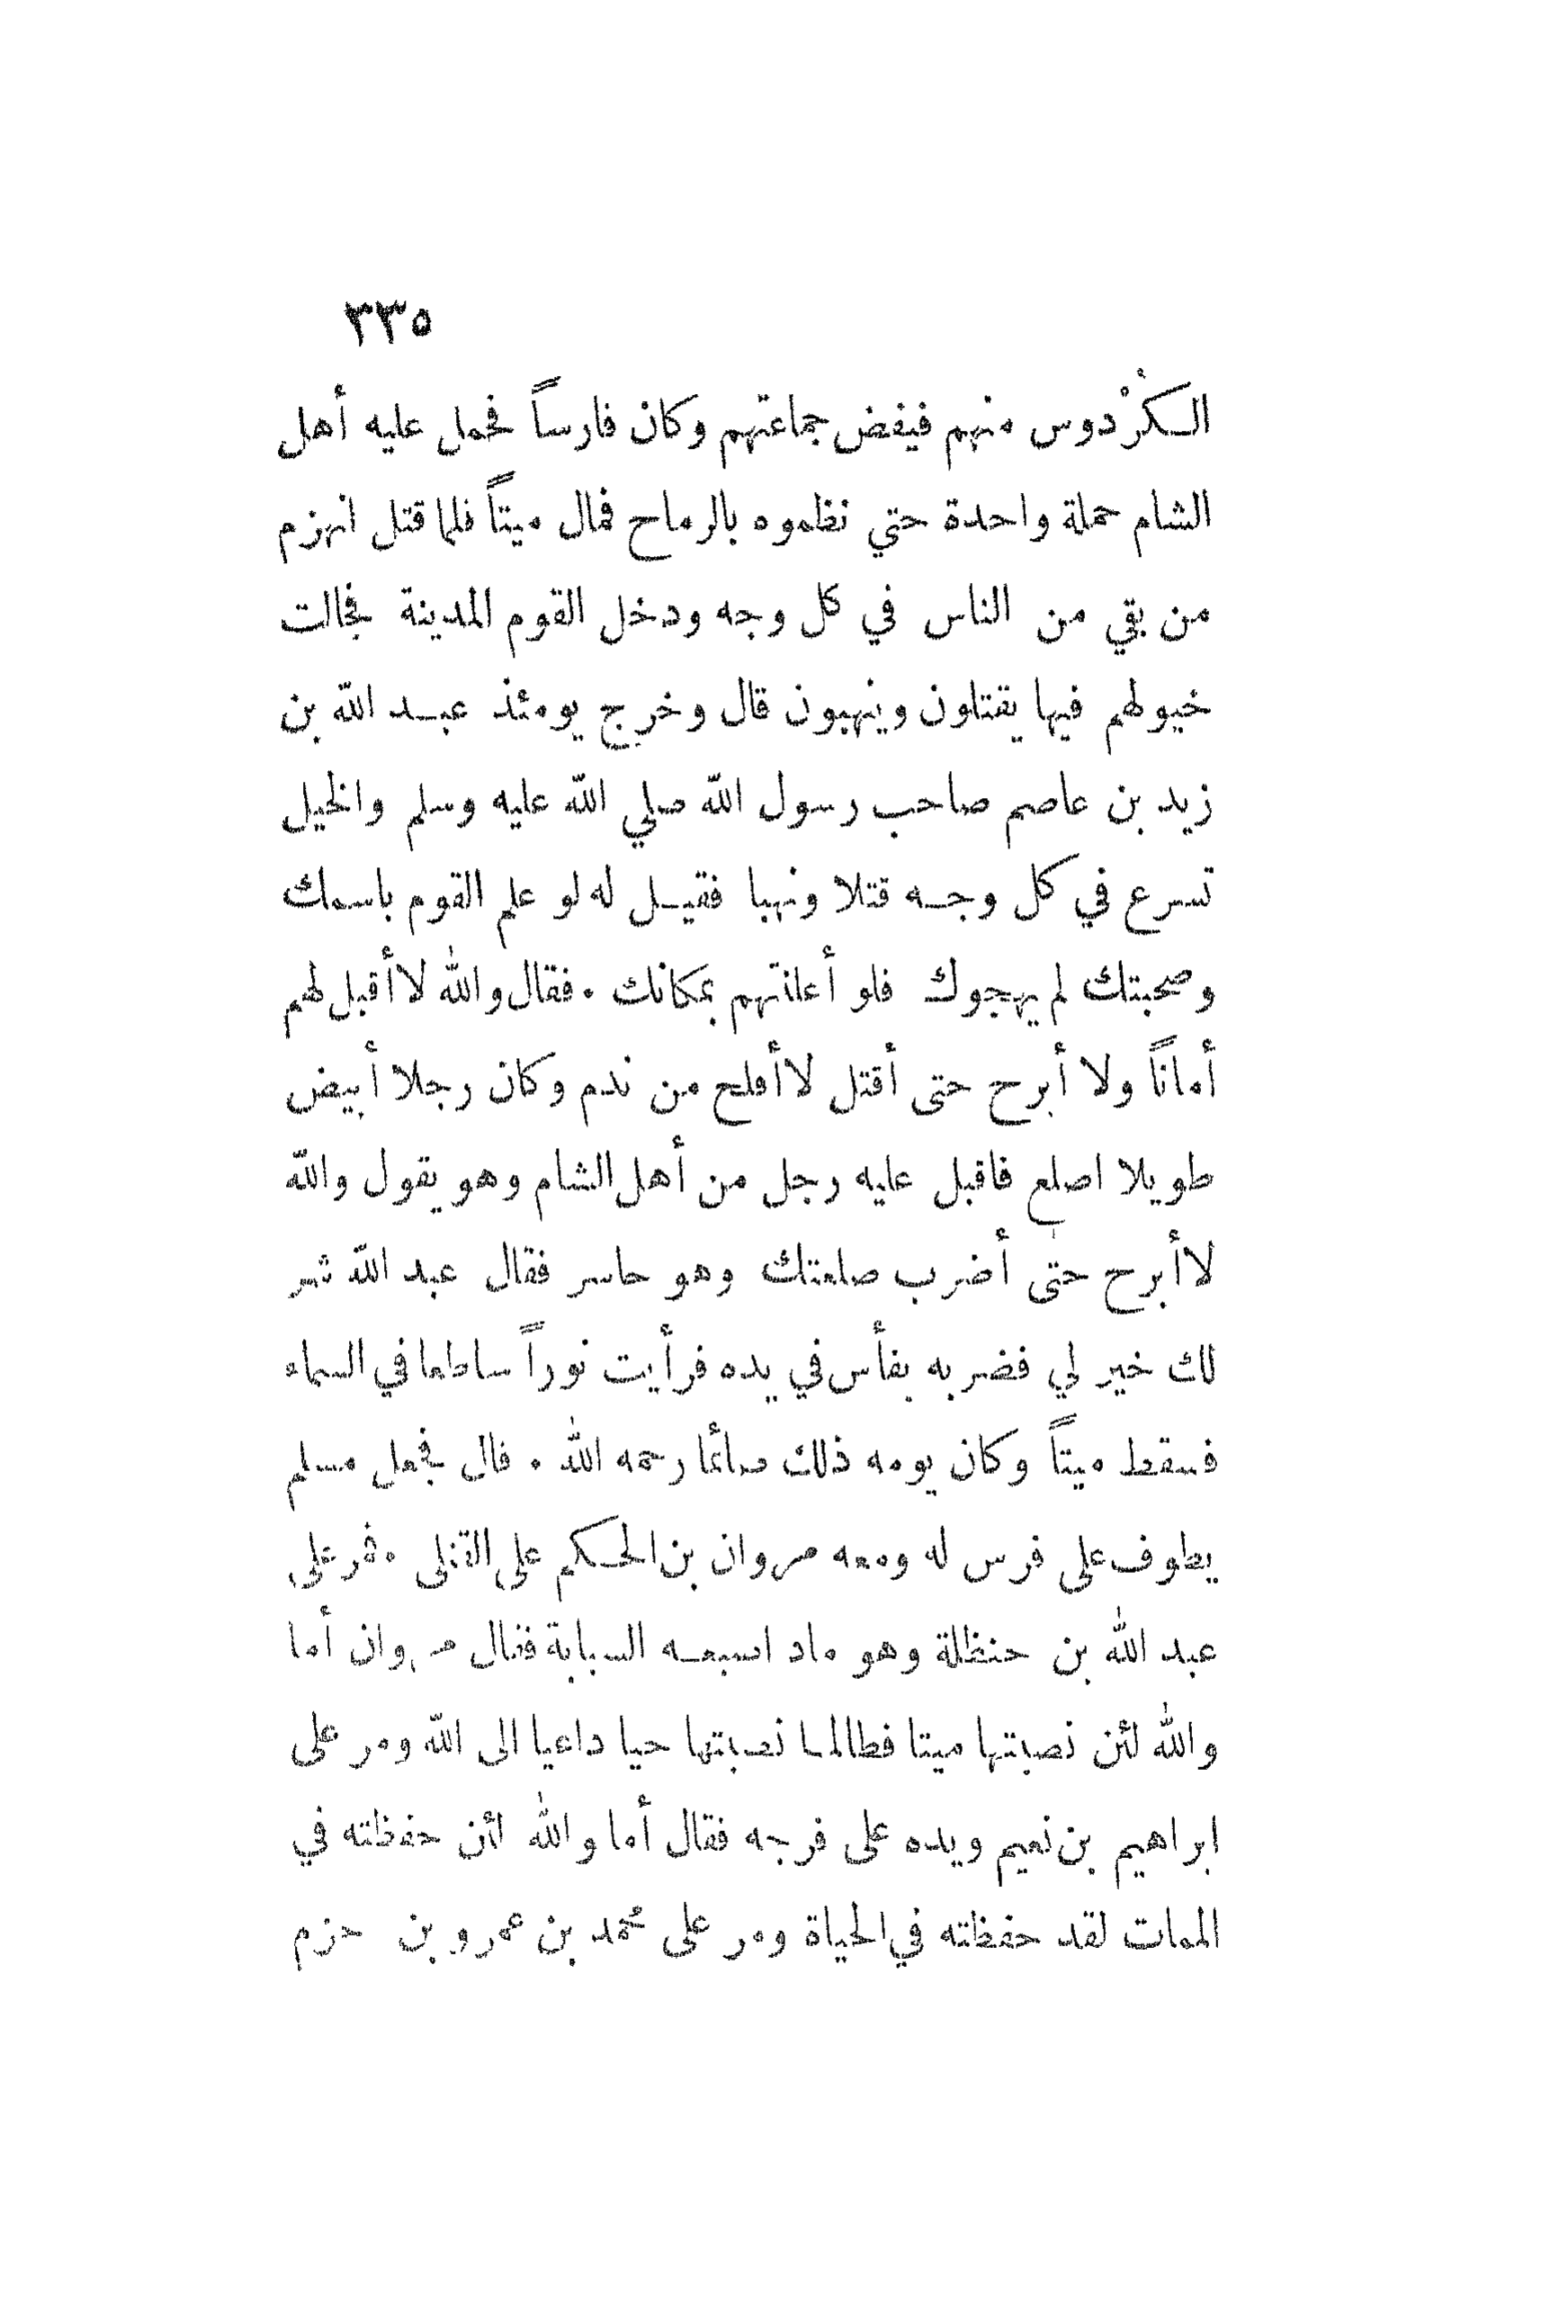 ٣٣٥
الكُرْدوس منهم فيفض جماعتهم وكان فارساً فحمل عليه أهل
الشام حملة واحدة حتي نظموه بالرماح فمال ميتاً فلما قتل انهزم
من بقي من الناس في كل وجه ودخل القوم المدينة فجالت
خيولهم فيها يقتلون وينهبون قال وخرج يومئذ عبد الله بن
زيد بن عاصم صاحب رسول الله صلي الله عليه وسلم والخيل
تسرع في كل وجه قتلا ونهبا فقيل له لو علم القوم باسمك
وصحبتك لم يهجوك فلو أعلمتهم بمكانك . فقال والله لا أقبل لهم
أماناً ولا أبرح حتى أقتل لا أفلح من ندم وكان رجلا أبيض
طويلا اصلع فاقبل عليه رجل من أهل الشام وهو يقول والله
لا أبرح حتى أضرب صلعتك وهو حاسر فقال عبد الله شر
لك خير لي فضربه بفأس في يده فرأيت نوراً ساطعا في السماء
فسقط ميتاً وكان يومه ذلك صائما رحمه الله . قال فجعل مسلم
يطوف على فرس له ومعه مروان بن الحكم على القتلى . فمر على
عبد الله بن حنظلة وهو ماد اصبعه السبابة فقال مروان أما
والله لئن نصبتها ميتا فطالما نصبتها حيا داعيا الى الله ومر على
ابراهيم بن نعيم ويده على فرجه فقال أما والله لئن حفظته في
الممات لقد حفظته في الحياة ومر على محمد بن عمرو بن حزم